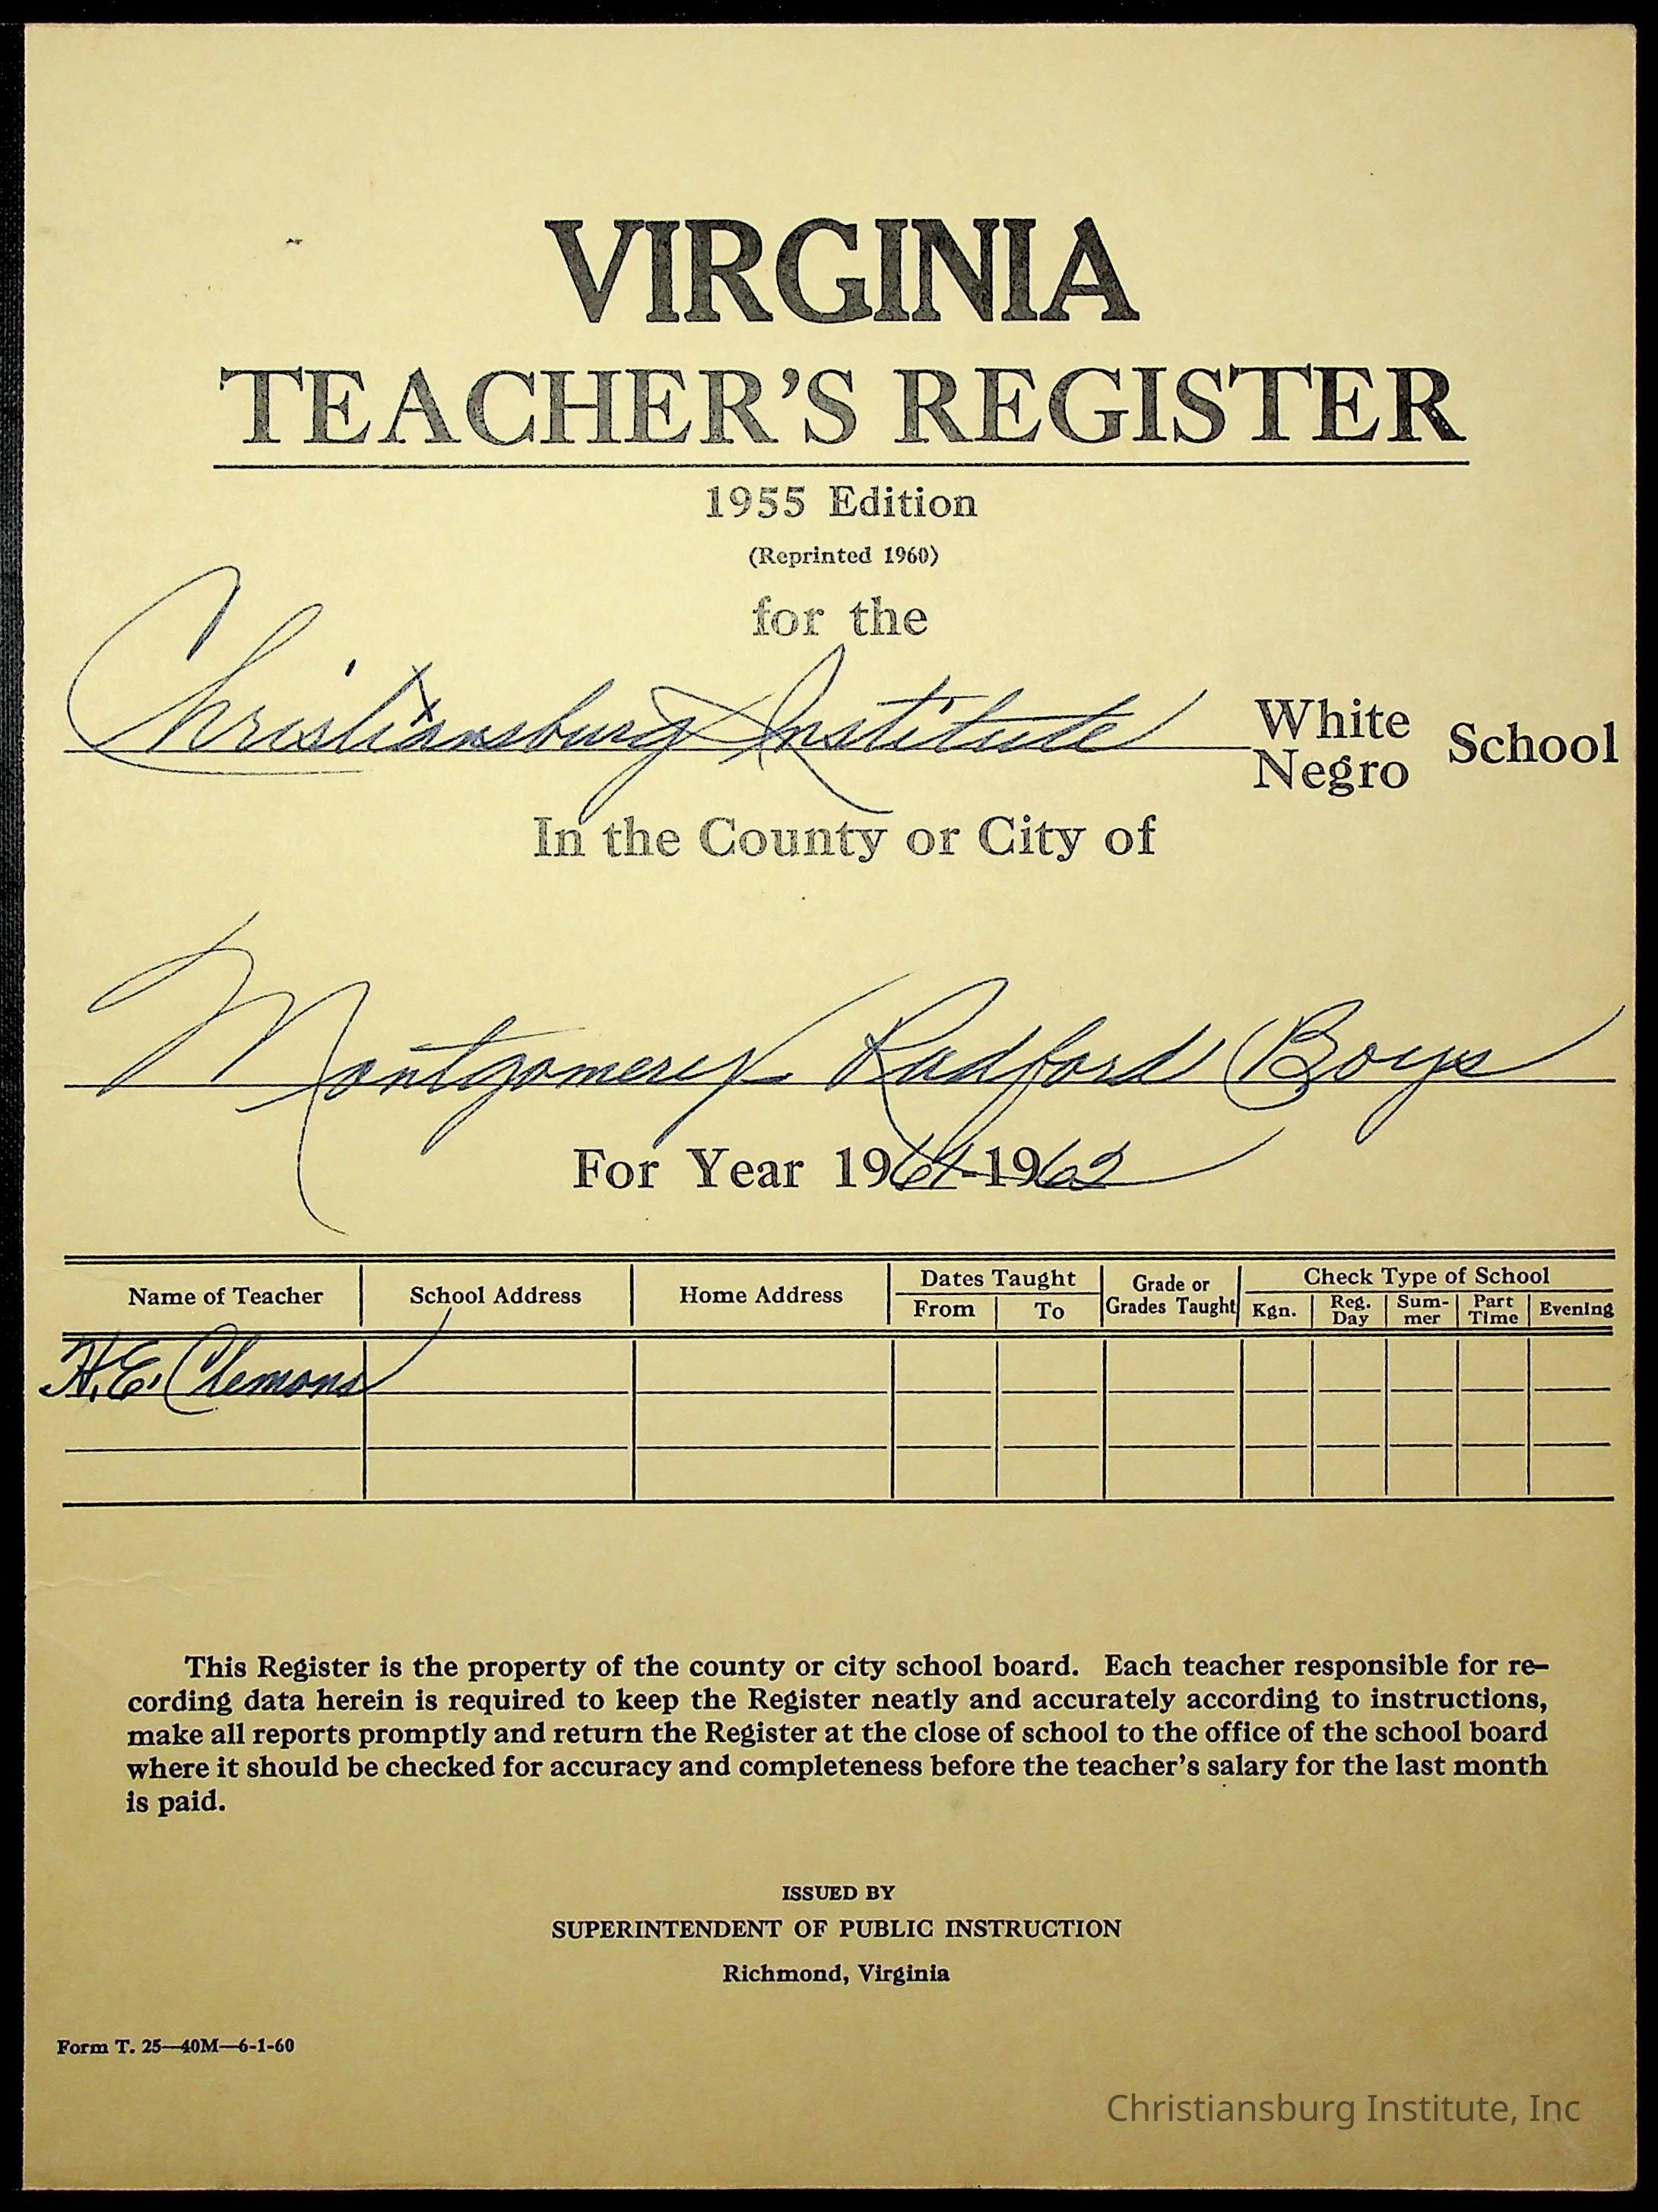 VIRGINIA
TEACHER'S REGISTER
1955 Edition
(Reprinted 1960)
for the
Christiansburg Institute White Negro School
In the County or City of
Montgomery Radford Boys
For Year 1961-1962
Name of Teacher School Address Home Address Dates Taught From To Grade or Grades Taught Check Type of School Kgn. Reg. Day Sum-mer Part Time Evening
H.E. Clemons
This Register is the property of the county or city school board. Each teacher responsible for re-
cording data herein is required to keep the Register neatly and accurately according to instructions,
make all reports promptly and return the Register at the close of school to the office of the school board
where it should be checked for accuracy and completeness before the teacher's salary for the last month
is paid.
ISSUED BY
SUPERINTENDENT OF PUBLIC INSTRUCTION
Richmond, Virginia
Form T. 25—40M—6-1-60
Christiansburg Institute, Inc